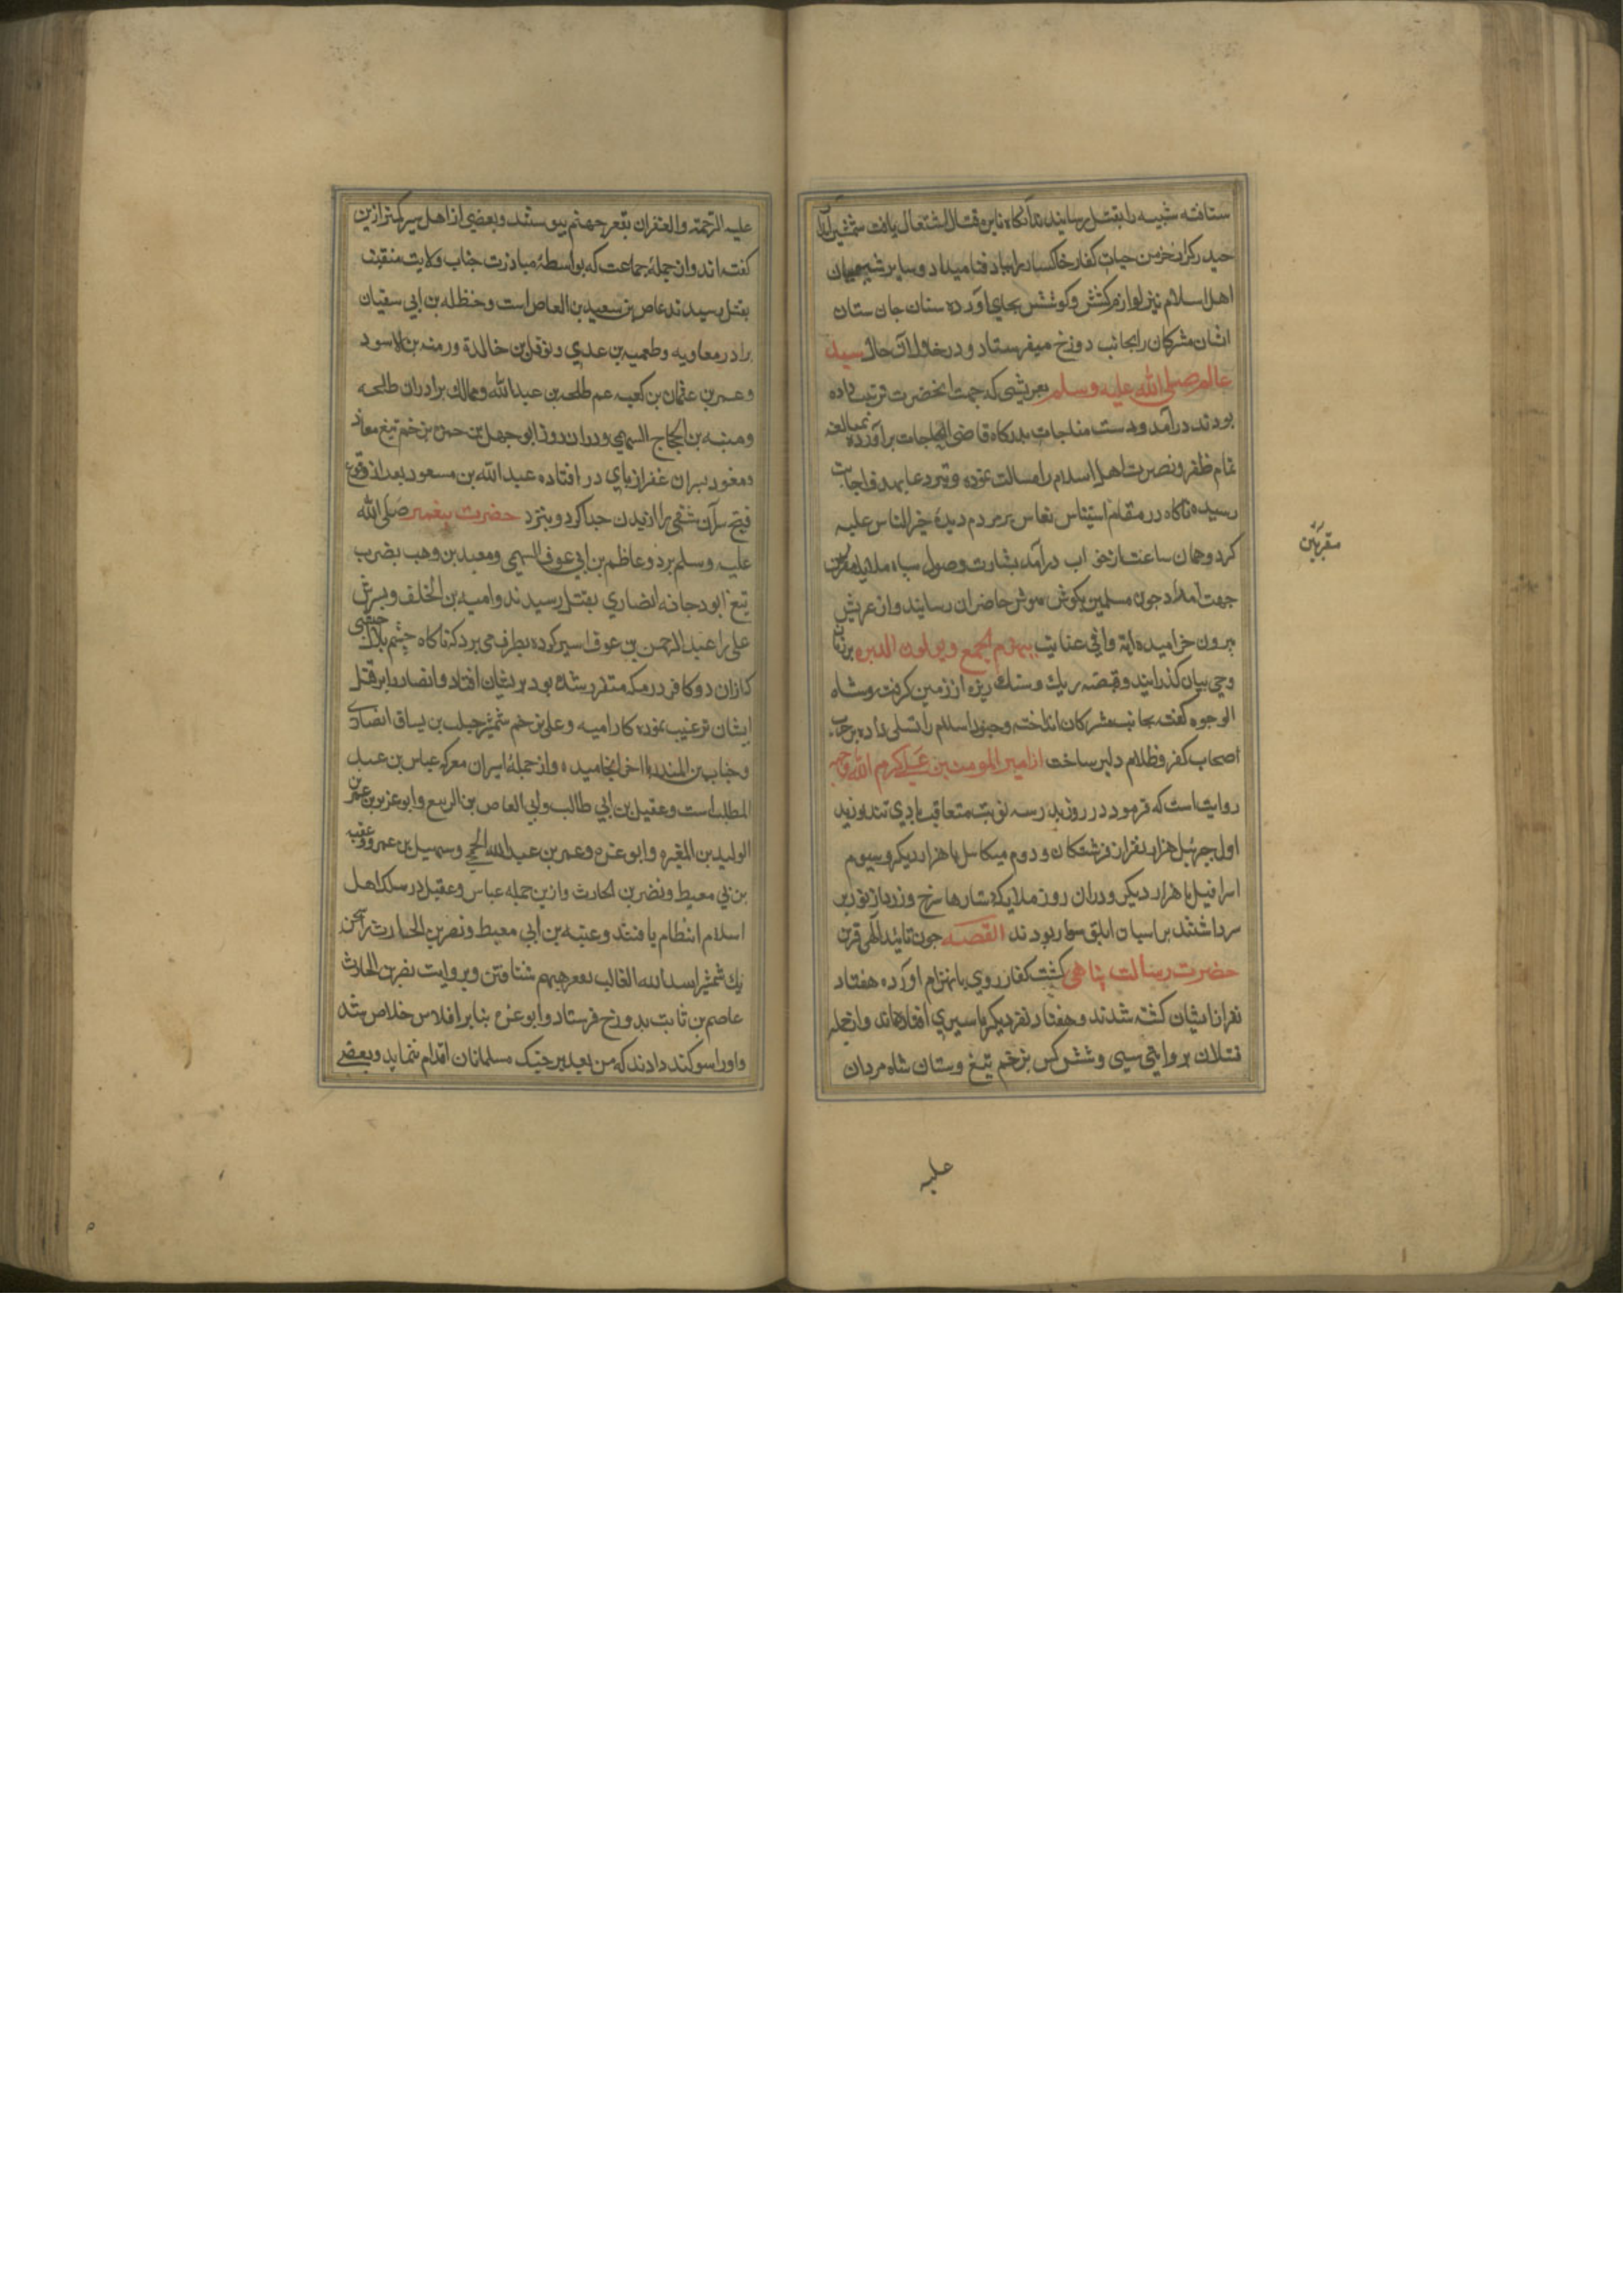 شتافته شیبه را بقتل رسانیدند آنگاه نایره قتال اشتعال یافت شمشیر آبدار
حیدر کرار خرمن حیات کفار خاکسار را بباد فنا میداد و سایر شجیعان
اهل اسلام نیز لوازم کشش و کوشش بجای آورده سنان جان ستان
ایشان مشرکان را بجانب دوزخ میفرستاد و در خلال آن حال سید
عالم صلی الله علیه و سلم بعریشی که جهت آنحضرت ترتیب داده
بودند درآمد و دست مناجات بدرگاه قاضی الحاجات برآورده بمبالغه
تمام ظفر و نصرت اهل اسلام را مسالت نموده و تیر دعا بهدف اجابت
رسیده ناگاه در مقام استیناس نعاس بر مردم دیدهٔ خیر الناس علیه
کرد و همان ساعت از خواب درآمد بشارت وصول سپاه ملایکه مقربین
جهت امداد چون مسلمین بگوش هوش حاضران رسانید و از عریش
بیرون خرامیده آیه وافی عنایت سیهزم الجمع و یولون الدبر بر زبان
وحی بیان گذرانید و قبضه ریگ و سنگ ریزه از زمین گرفت و شاه
الوجوه گفت بجانب مشرکان انداخته و جنود اسلام را تسلی داده بر حرب
اصحاب کفر و ظلام دلیر ساخت از امیر المومنین علی کرم الله وجهه
روایت است که فرمود در روز بدر سه نوبت متعاقب بادی تند وزید
اول جبرئیل هزار نفر از فرشتگان و دوم میکاییل با هزار دیگر و سیوم
اسرافیل با هزار دیگر و در آن روز ملایکه دستارها سرخ و زرد از نور بر
سر داشتند بر اسپان ابلق سوار بودند القصه چون تائید الهی قرین
حضرت رسالت پناهی گشت کفار روی بانهزام آورده هفتاد
نفر از ایشان کشته شدند و هفتاد نفر دیگر باسیری افتادهاند و از جمله
قتلان بروایتی سی و شش کس بزخم تیغ و سنان شاه مردان
مقربین
علیه
علیه الرحمة و الغفران بقعر جهنم پیوستند و بعضی از اهل سیر کمتر ازین
گفته اند و از جملهٔ جماعت که بواسطهٔ مبارزت جناب ولایت منقبت
بقتل رسیدند عاص بن سعید بن العاص است و حنظله بن ابی سفیان
برادر معاویه و طعمیه بن عدی و نوفل بن خالدة و رمنه بن الاسود
و عمر بن عثمان بن کعب عم طلحه بن عبدالله و مالک برادران طلحه
و منبه بن الحجاج السهمی و در آن روز ابو جهل بن حمزه بزخم تیغ معاذ
و معوذ پسران عفر از پای در افتاده عبد الله بن مسعود بعد از وقوع
فتح سر آن شقی را از بدن جدا کرد و بنزد حضرت پیغمبر صلی الله
علیه و سلم برد و عاظم بن ابی عوف السهمی و معبد بن وهب بضرب
تیغ ابودجانه انصاری بقتل رسیدند و امیه بن الخلف و پسرش
علی را عبد الرحمن بن عوف اسیر کرده بطرف می برد که ناگاه چشم بلال حبشی
کازان دو کافر در مکه متفرد شده بود بریشان افتاد و انصار را بر قتل
ایشان ترغیب نموده کار امیه و علی بزخم شمشیر حبیب بن یساق انصاری
و خباب بن المنذر باخر انجامیده و از جملهٔ اسیران معرکه عباس بن عبد
المطلب است و عقیل بن ابی طالب و ابی العاص بن الربیع و ابو عزیز بن عمیر
الولید بن المغیره و ابو عزه و عمر بن عبد الله الجمحی و سهیل بن عمرو و عقبه
بن بی معیط و نضر بن الحارث و ازین جمله عباس و عقیل در سلک اهل
اسلام انتظام یافتند و عتبه بن ابی معیط و نضر بن الحارث
بیک شمشیر اسد الله الغالب بقعر جهنم شتافتن و بروایت نضر بن الحارث
عاصم بن ثابت بدوزخ فرستاد و ابو عزه بنابر افلاس خلاص شد
و او را سوگند دادند که من بعد بر جنگ مسلمانان اقدام ننماید و بعضی